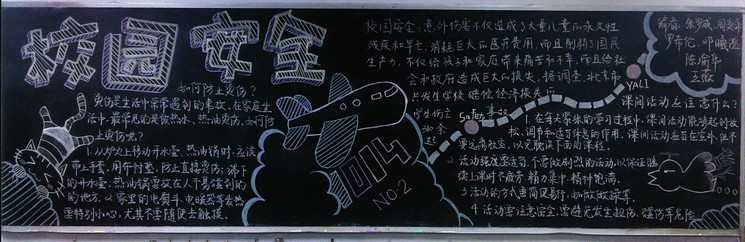 校园安全
如何防止烫伤?
烫伤是生活中常常遇到的事故.在家庭生
活中,最常见的是被热水、热油烫伤.如何防
止烫伤呢?
1.从炉火上移动开水壶、热油锅时,应该
带上手套,用布衬垫,防止直接烫伤;端下
的开水壶、热油锅要放在人不易碰到的
的地方.
特别小心,尤其不要随便去触摸.
1014
NO.2
校园安全,意外伤害不仅造成了大量儿童的永久性
残疾和早亡,消耗巨大的医疗费用,而且削弱了国民
生产力.不仅给孩子和家庭带来痛苦和不幸,而且给社
会和政府造成巨大的损失.据调查,北京市
Safety
YALI
课间活动应注意什么?
1.在每天紧张的学习过程中,课间活动能够起到放
松、调节和适当休息的作用.课间活动应当在室外,但不
要远离教室,以免耽误下面的课程.
2.活动强度要适当,不要做剧烈的活动,以保证继
续上课时不疲劳、精力集中、精神饱满.
3.活动的方式要简便易行,如做做操等.
4.活动要注意安全,要避免发生扭伤、碰伤等危险.